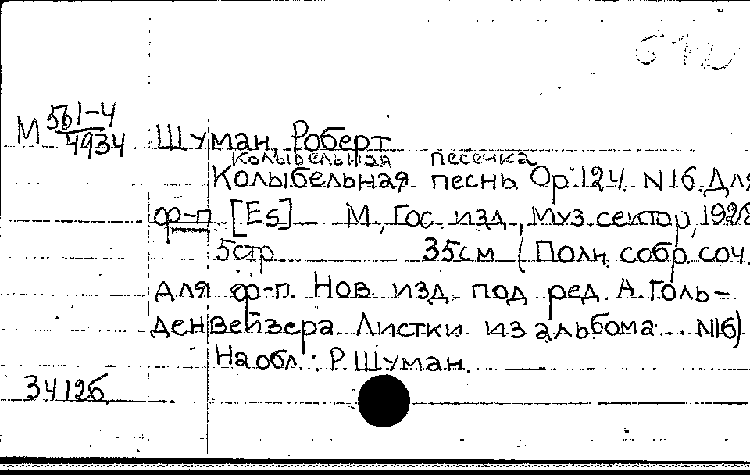 612
М 561-4
4934
Шуман, Роберт
Колыбельная песенка
Колыбельная песнь. Op.124. N16. Для
ф-п [Es] М., Гос. изд., Муз. сектор, 1928
5 стр. 35 см (Полн. собр. соч.
для ф-п. Нов. изд. под ред. А. Голь-
денвейзера. Листки из альбома. N16)
На обл.: Р. Шуман.
34126